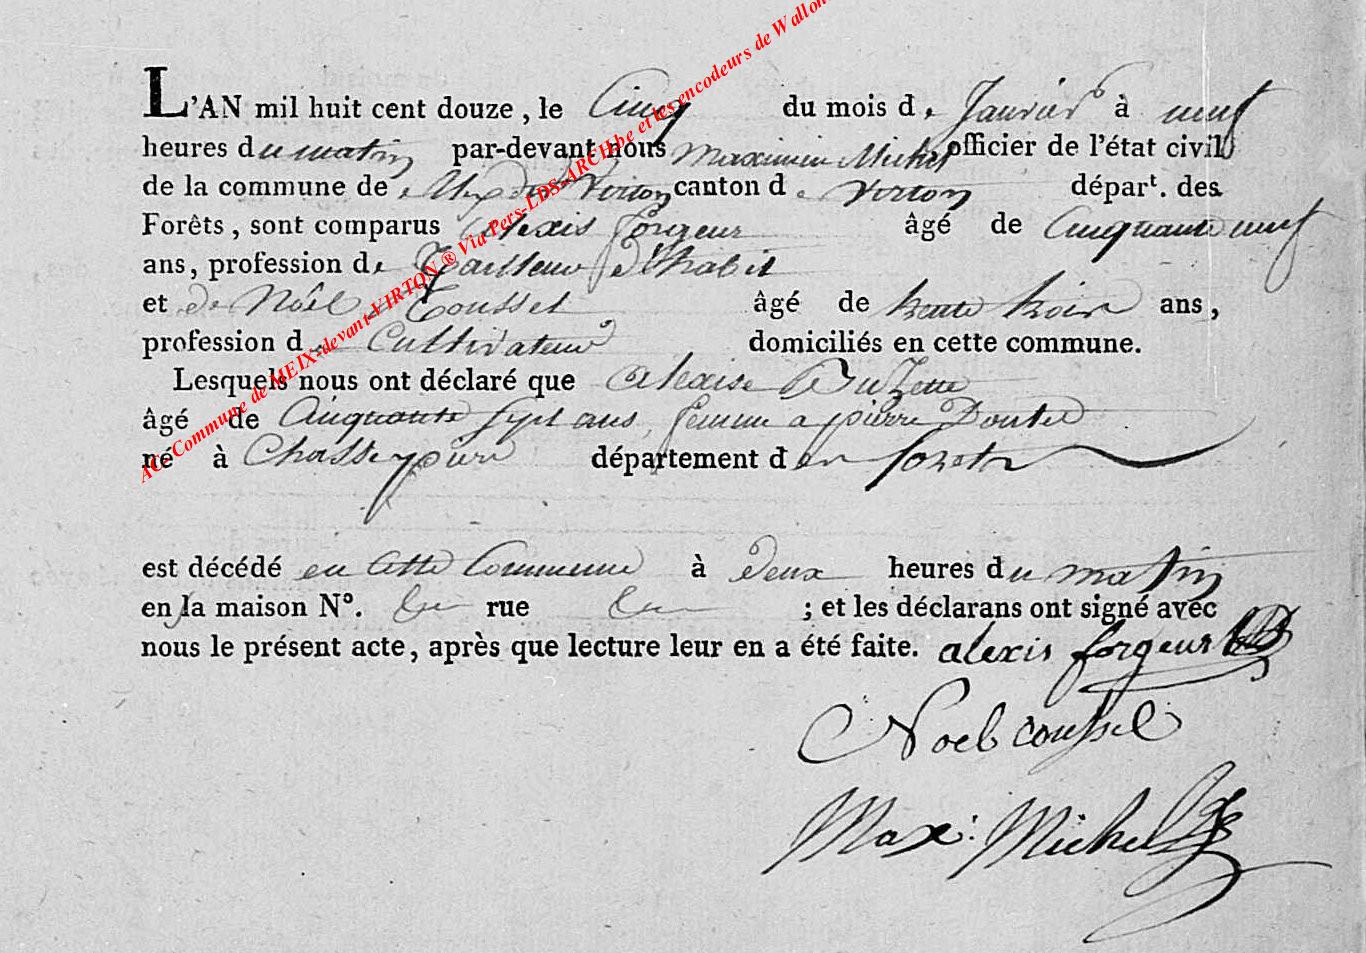 AC-Commune de MEIX-devant-VIRTON ® Via Pers-LDS-ARCH.be et les encodeurs de Wallon
L'AN mil huit cent douze, le Cinq du mois de Janvier à neuf
heures du matin par-devant nous maximin Michel officier de l'état civil
de la commune de Meix dt Virton canton de Virton départ. des
Forêts, sont comparus alexis forgeur âgé de Cinquante neuf
ans, profession de Tailleur d'habit
et de Noêl Cousset âgé de trente trois ans,
profession de Cultivateur domiciliés en cette commune.
Lesquels nous ont déclaré que alexise
âgé de Cinquante Sept ans, femme a pierre
né à Chassepierre département den foret
est décédé en Cette Commune à deux heures du matin
en la maison N°. rue ; et les déclarans ont signé avec
nous le présent acte, après que lecture leur en a été faite. alexis forgeur
Noel coussel
Max: Michel